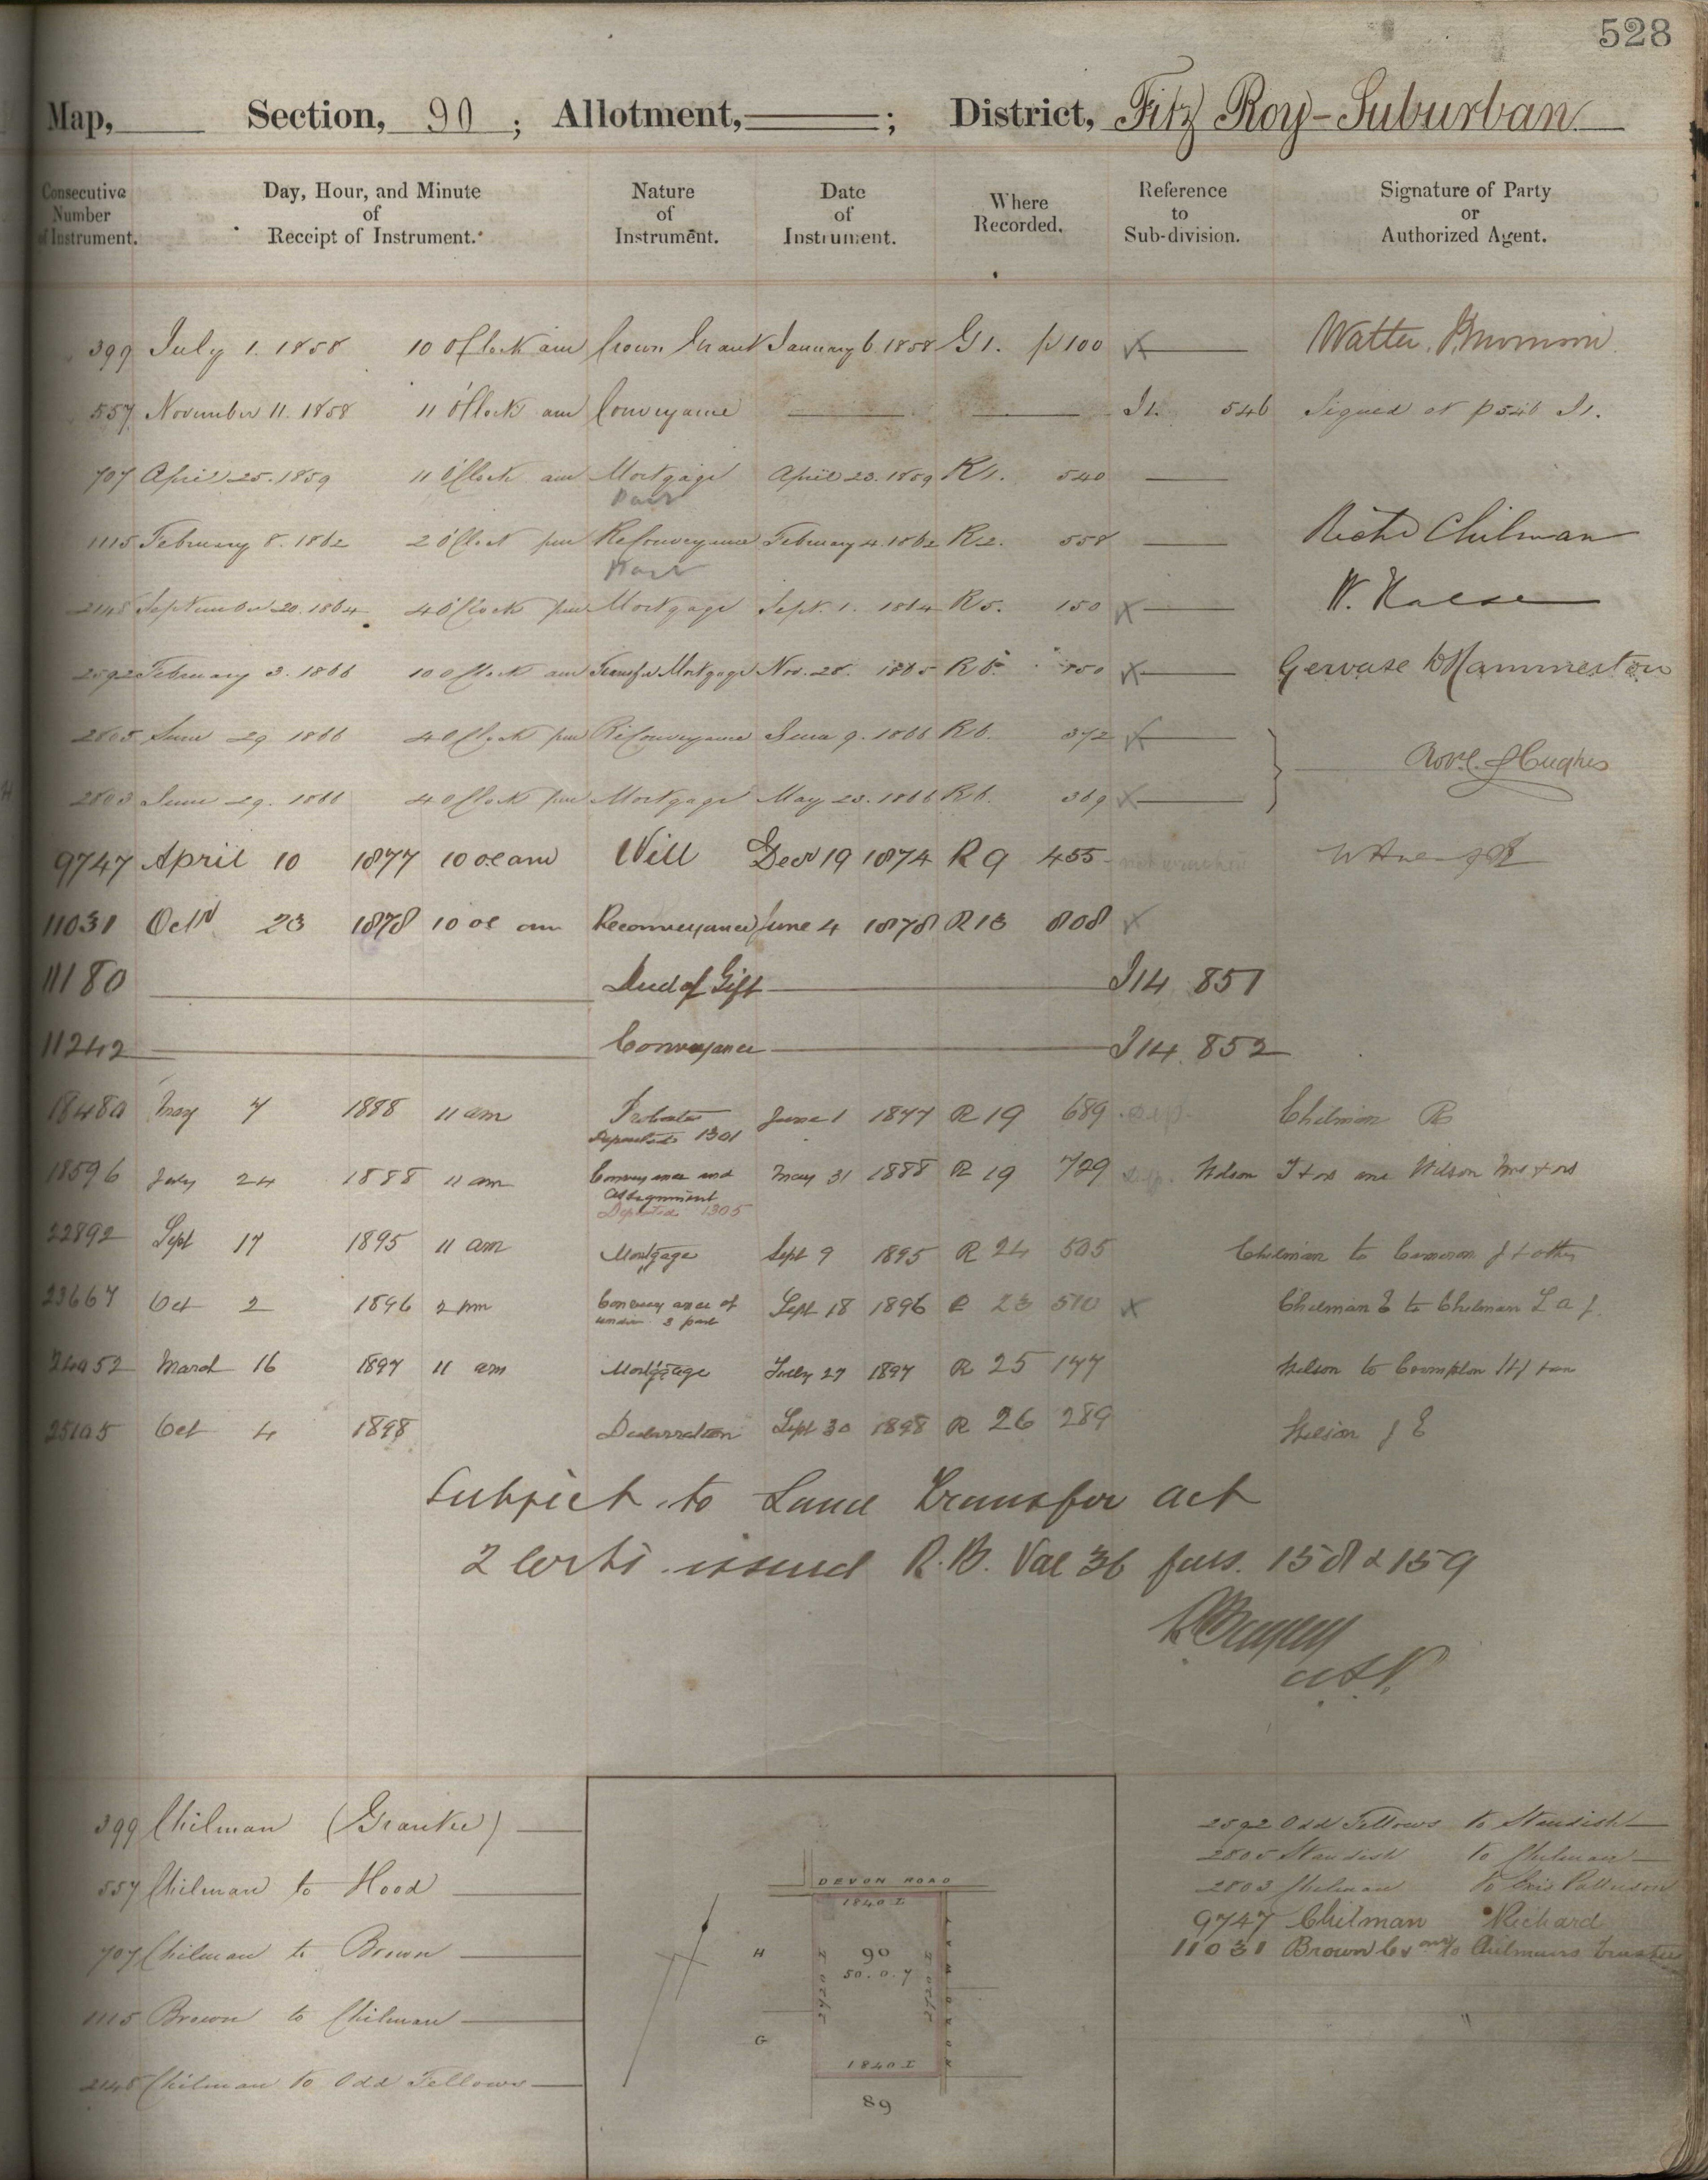 528
Map, Section, 90 ; Allotment, ; District, Fitz Roy - Suburban
Consecutive Number of Instrument.
Day, Hour, and Minute of Receipt of Instrument.
Nature of Instrument.
Date of Instrument.
Where Recorded.
Reference to Sub-division.
Signature of Party or Authorized Agent.
399 July 1. 1858 10 O'Clock am Crown Grant January 6. 1858 G 1. p 100 x
557 November 11. 1858 11 O'Clock am Conveyance I 1. 546 Signed at p 546 I 1.
707 April 25. 1859 11 O'Clock am Mortgage April 23. 1859 R 1. 540
Part
1115 February 8. 1862 2 O'Clock pm ReConveyance February 4. 1862 R 2. 558 Richd Chilman
Part
2148 September 20. 1864 4 O'Clock pm Mortgage Sept. 1. 1864 R 5. 150 x W. Halse
2592 February 3. 1866 10 O'Clock am Transfer Mortgage Nov. 28. 1865 R 6. x Gervase D Hammerton
2805 June 29 1866 4 O'Clock pm ReConveyance June 9. 1866 R 6. 372 x
Robt. C. Hughes
2803 June 29. 1866 4 O'Clock pm Mortgage May 23. 1866 R 6. 369 x
9747 April 10 1877 10 oc am Will Decr 19 1874 R 9 455
11031 Octr 23 1878 10 oc am Reconveyance June 4 1878 R 13 808 x
11180 Deed of Gift I 14 851
11242 Conveyance I 14. 852
May 7 1888 11 am Probate June 1 1877 R 19 689 Chilman R
Deposited 1301
18596 July 24 1888 11 am Conveyance and May 31 1888 R 19 729 Wilson
Assignment
Deposited 1305
22892 Sept 17 1895 11 am Mortgage Sept 9 1895 R 24 505 Chilman to Cameron J & others
23667 Oct 2 1896 2 pm Conveyance of Sept 18 1896 R 23 510 x Chilman E to Chilman L a J.
March 16 1897 11 am Mortgage July 27 1897 R 25 177
Oct 4 1898 Declaration Sept 30 1898 R 26 289
Subject to Land Transfer act
2 certs issued R.B. Vol 36 fols. 158 & 159
399 Chilman (Grantee)
557 Chilman to Hood
707 Chilman to Brown
1115 Brown to Chilman
2148 Chilman to Odd Fellows
DEVON ROAD
1840 L
H
90
50.0.7
2720 L
2720 L
G
1840 L
89
2592 Odd Fellows to Standish
2805 Standish to Chilman
2803 Chilman to
9747 Chilman Richard
11031 Brown to Chilmans Trustees